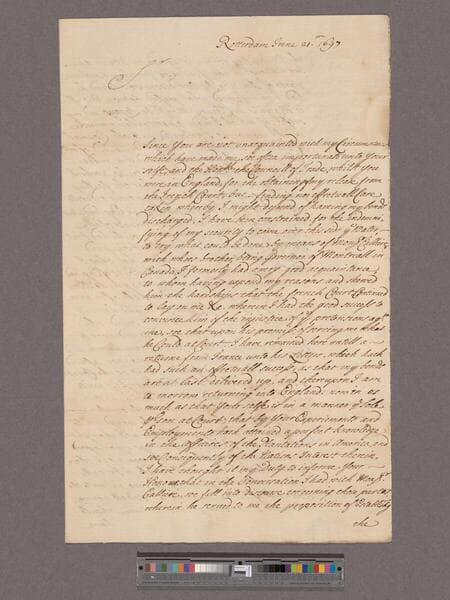 Rotterdam June 21.st 1697
Sr
Since You are not unacquainted with my Circumstances
which have made me so often importunate unto Your
self, and the Hon.ble the Councill of Trade, whilst You
were in England, for the obtaining of my release from
the French Court; but finding no effectuall Care
taken whereby I might depend of having my bond
discharged, I have been constrained for the Indemni-
fying of my security to come over this side ye Water
to try what could be done by means of Monsr. Calliere,
with whose brother, being Governor of Montreall in
Canada, I formerly had a very good acquaintance
to whom having opened my reasons and shewed
him the hardships that the french Court Continued
to lay on me &c. wherein I had the good success to
convince him of the injustice of ye pretensions agt.
me, soe that upon his promise of serving me what
he Could at Court, I have remained here untill a
returne from France unto his Letters, which hath
had such an effectuall success, as that my bonds
are at last delivered up, and thereupon I am
to morrow returning into England: now in as
much as that State self is in a manner ye Sole
Person at Court, that by Your Experiments and
Employments hath attained a perfect Knowledge
in the affaires of the Plantations in America, and
soe Consequently of the Nations Interest therein,
I have thought it my duty to informe Your
Honour that in the Conversation I had with Monsr.
Calliere, we fell into discourse concerning those parts
wherein he renued to me the proposition of Establishg
the